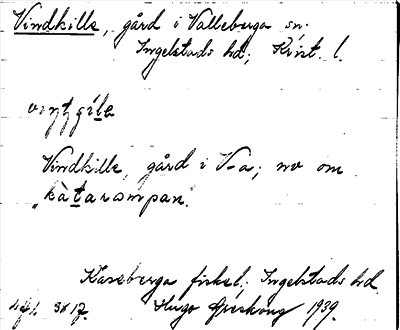 Vindkille, gård i Valleberga sn.
Ingelstads hd; Krist. l.
Vindkille, gård i V-a; nv om
"kàtarompan".
Kaseberga fiskel.; Ingelstads hd.
Hugo Areskoug 1939.